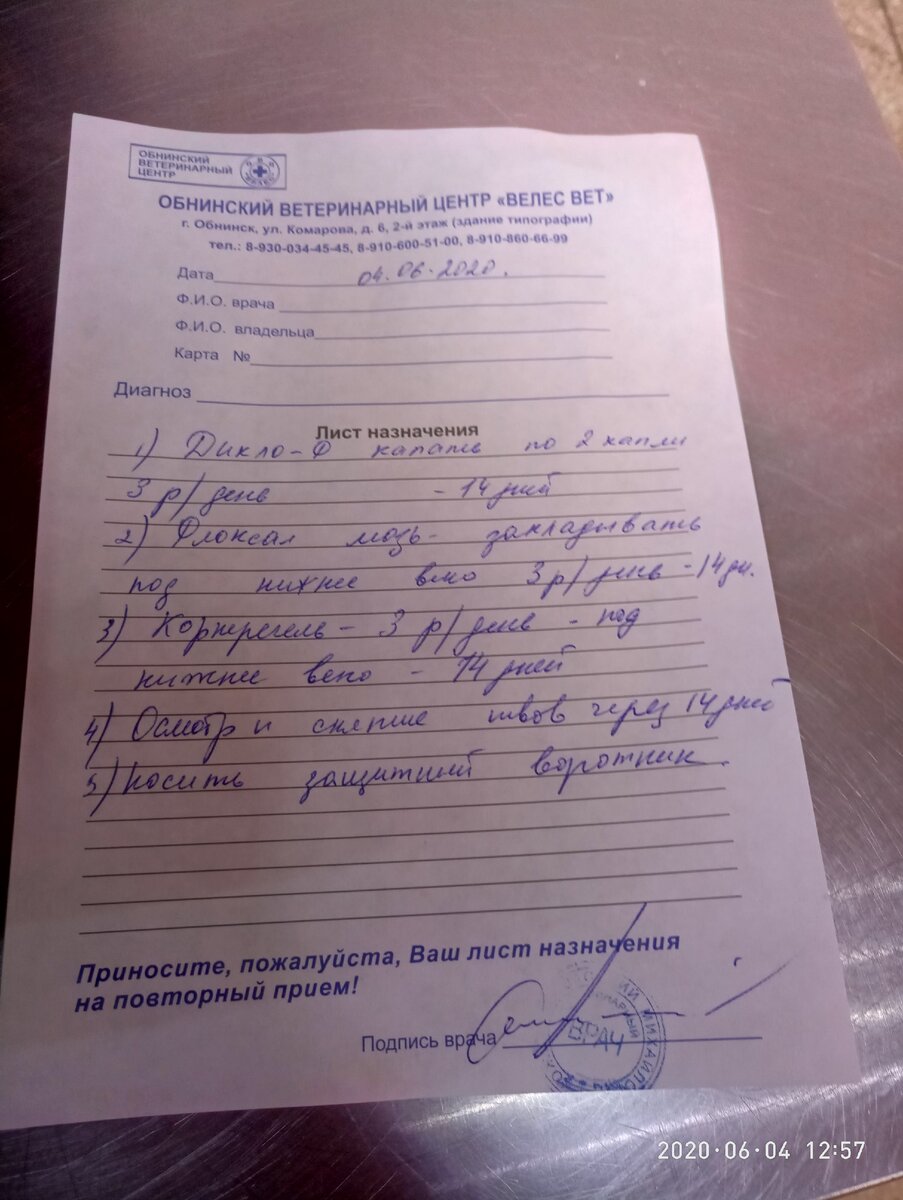 ОБНИНСКИЙ
ВЕТЕРИНАРНЫЙ
ЦЕНТР
ОБНИНСКИЙ ВЕТЕРИНАРНЫЙ ЦЕНТР «ВЕЛЕС ВЕТ»
г. Обнинск, ул. Комарова, д. 6, 2-й этаж (здание типографии)
тел.: 8-930-034-45-45, 8-910-600-51-00, 8-910-860-66-99
Дата 04.06.2020.
Ф.И.О. врача
Ф.И.О. владельца
Карта №
Диагноз
Лист назначения
1) Дикло-Ф капать по 2 капли
3 р/день - 14 дней
2) Флоксал мазь- закладывать
под нижнее веко 3 р/день - 14 дн.
3) Корнрегель - 3 р/день - под
нижнее веко - 14 дней
4) Осмотр и снятие швов через 14 дней
5) Носить защитный воротник.
Приносите, пожалуйста, Ваш лист назначения
на повторный прием!
Подпись врача
ВРАЧ
2020·06·04 12:57